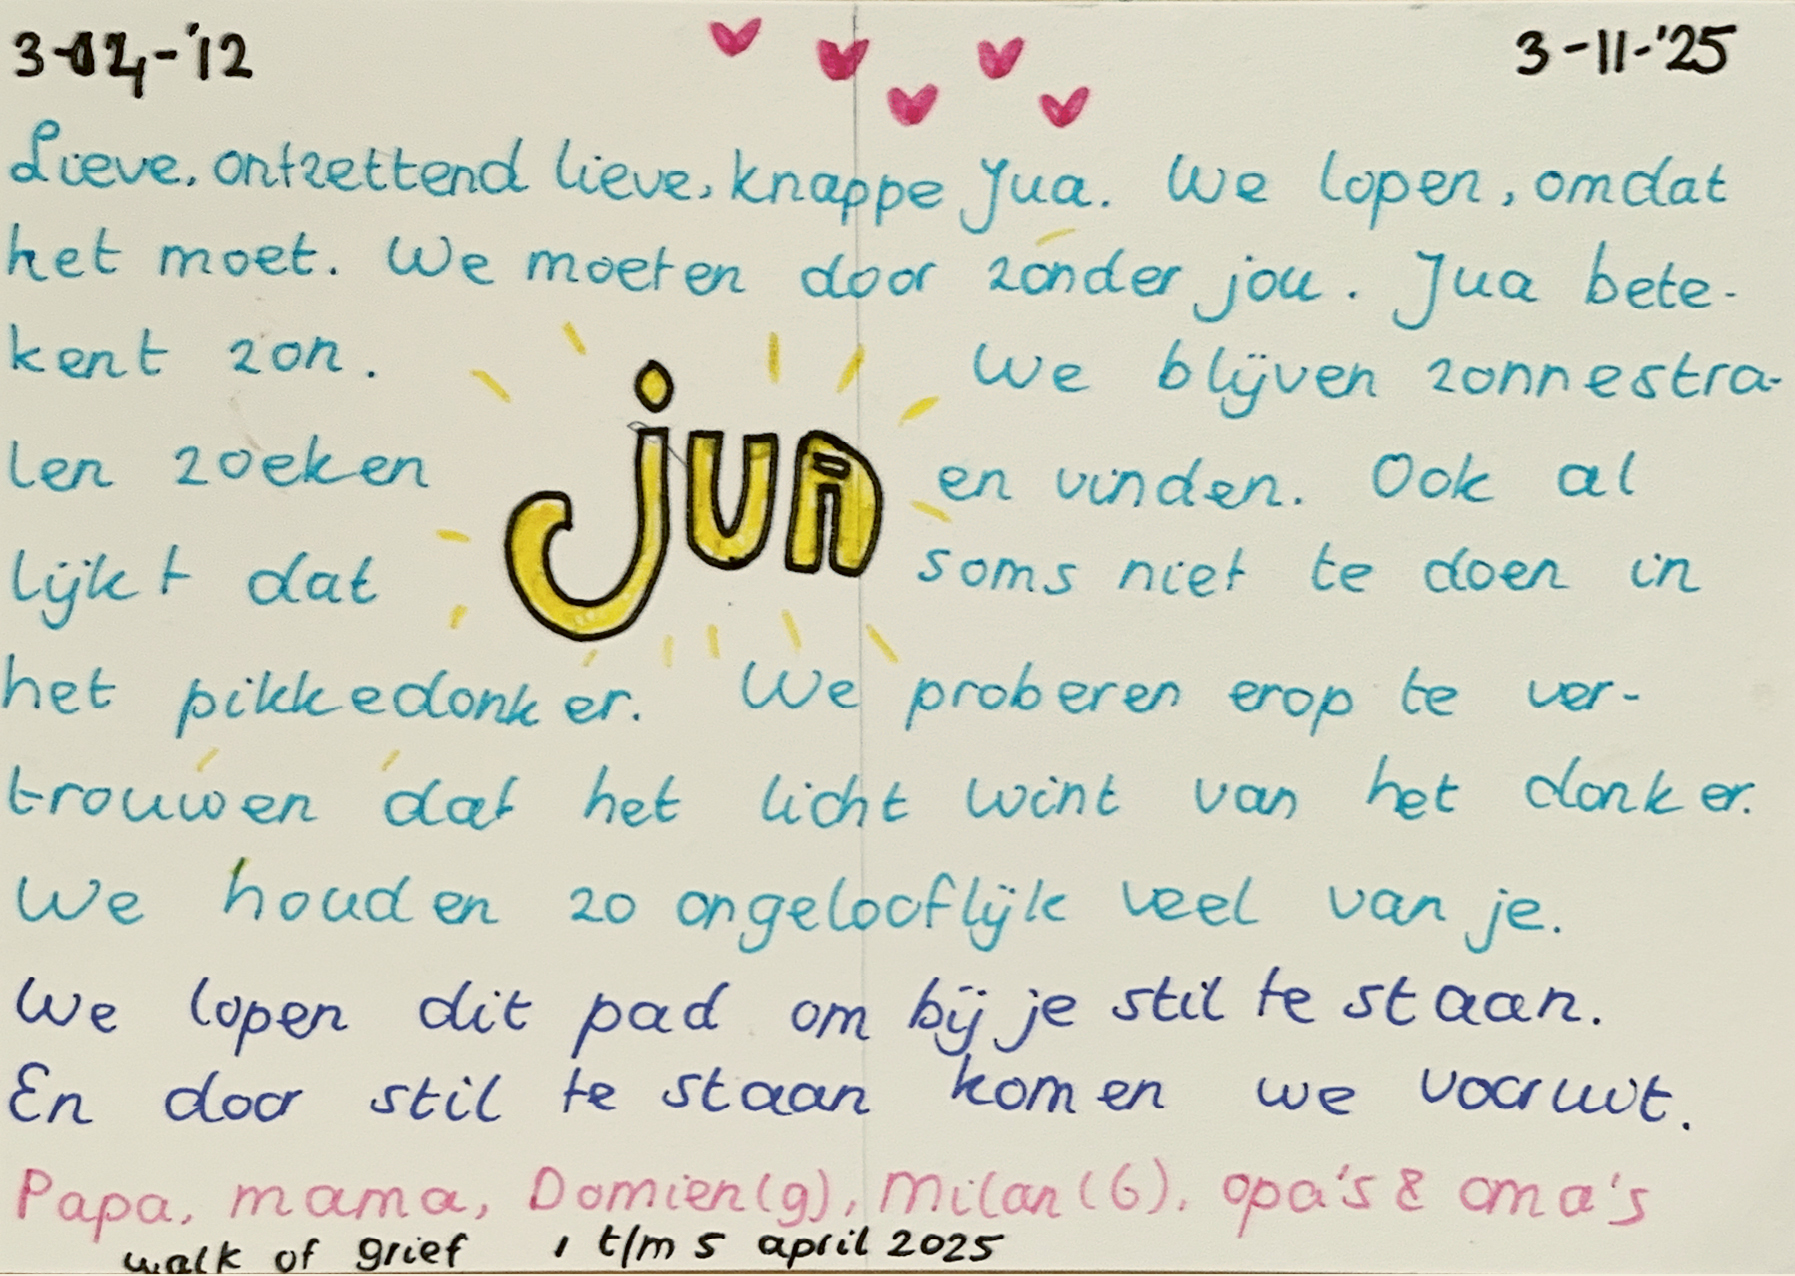 3-04-'12 3-11-'25
Lieve, ontzettend lieve, knappe Jua. We lopen, omdat
het moet. We moeten door zonder jou. Jua bete-
kent zon. We blijven zonnestra-
len zoeken jua en vinden. Ook al
lijkt dat soms niet te doen in
het pikkedonker. We proberen erop te ver-
trouwen dat het licht wint van het donker.
We houden zo ongelooflijk veel van je.
We lopen dit pad om bij je stil te staan.
En door stil te staan komen we vooruit.
Papa, mama, Domien(9), Milan(6), opa's & oma's
walk of grief 1 t/m 5 april 2025